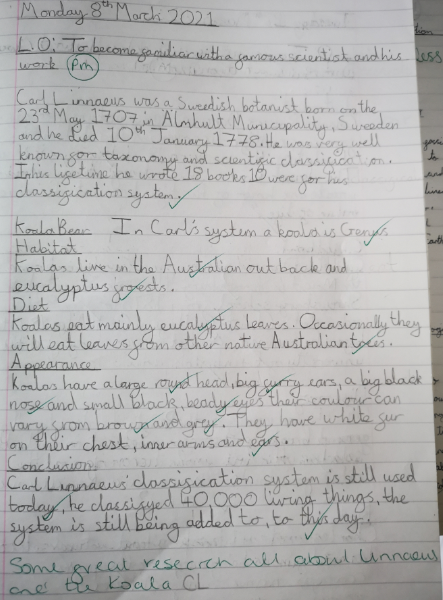 Monday 8th March 2021
L.O: To become familiar with a famous scientist and his
work Pm
Carl Linnaeus was a Swedish botanist born on the
23rd May 1707, in Almhult Municipality, Sweeden
and he died 10th January 1778. He was very well
known for taxonomy and scientific classification.
In his lifetime he wrote 18 books 10 were for his
classification system.
Koala Bear In Carl's system a koala is Grenus
Habitat
Koalas live in the Australian out back and
eucalyptus forests.
Diet
Koalas eat mainly eucalyptus leaves. Occasionally they
will eat leaves from other native Australian trees.
Appearance
Koalas have a large round head, big furry ears, a big black
nose and small black, beady eyes their coulour can
vary from brown and grey. They have white fur
on their chest, inner arms and ears.
Conclusion
Carl Linnaeus' classification system is still used
today, he classifyed 40,000 living things, the
system is still being added to, to this day.
Some great research all about Linnaeus
and the Koala CL